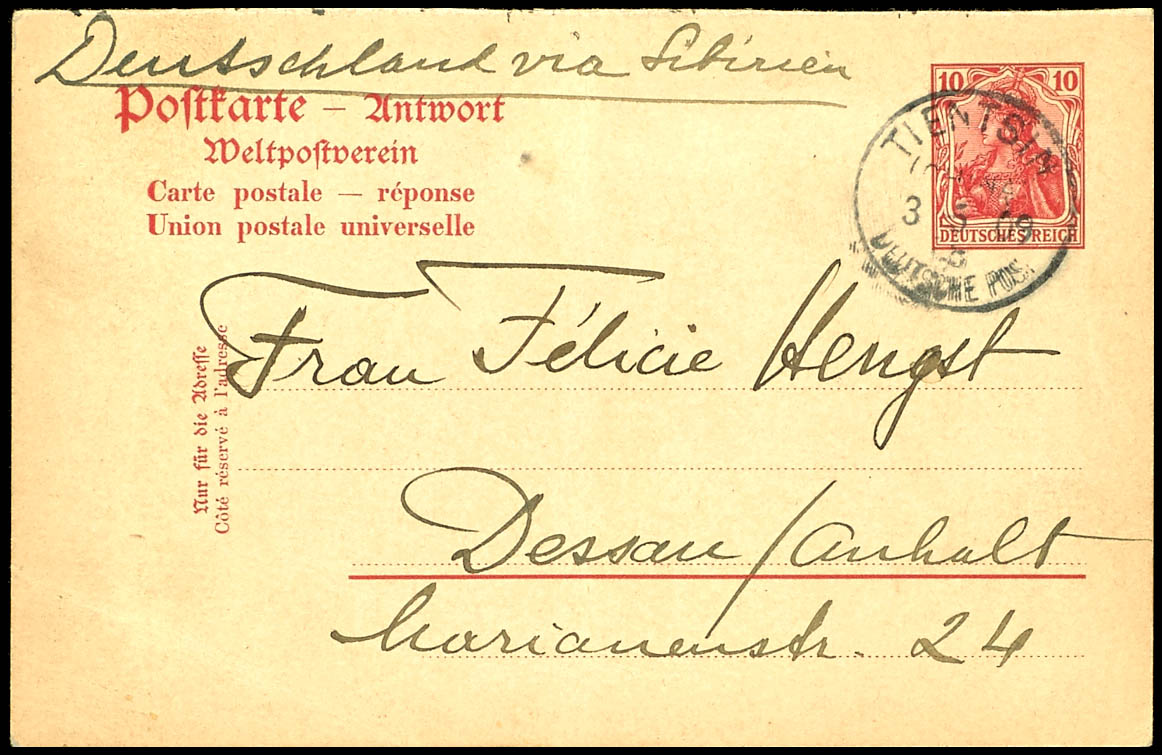 Deutschland via Sibirien
Postkarte – Antwort
Weltpostverein
Carte postale — réponse
Union postale universelle
10 10
DEUTSCHES REICH
TIENTSIN
3 09
DEUTSCHE POST
Frau Félicie Hengst
Nur für die Adresse
Côté réservé à l'adresse
Dessau/Anhalt
Marianenstr. 24